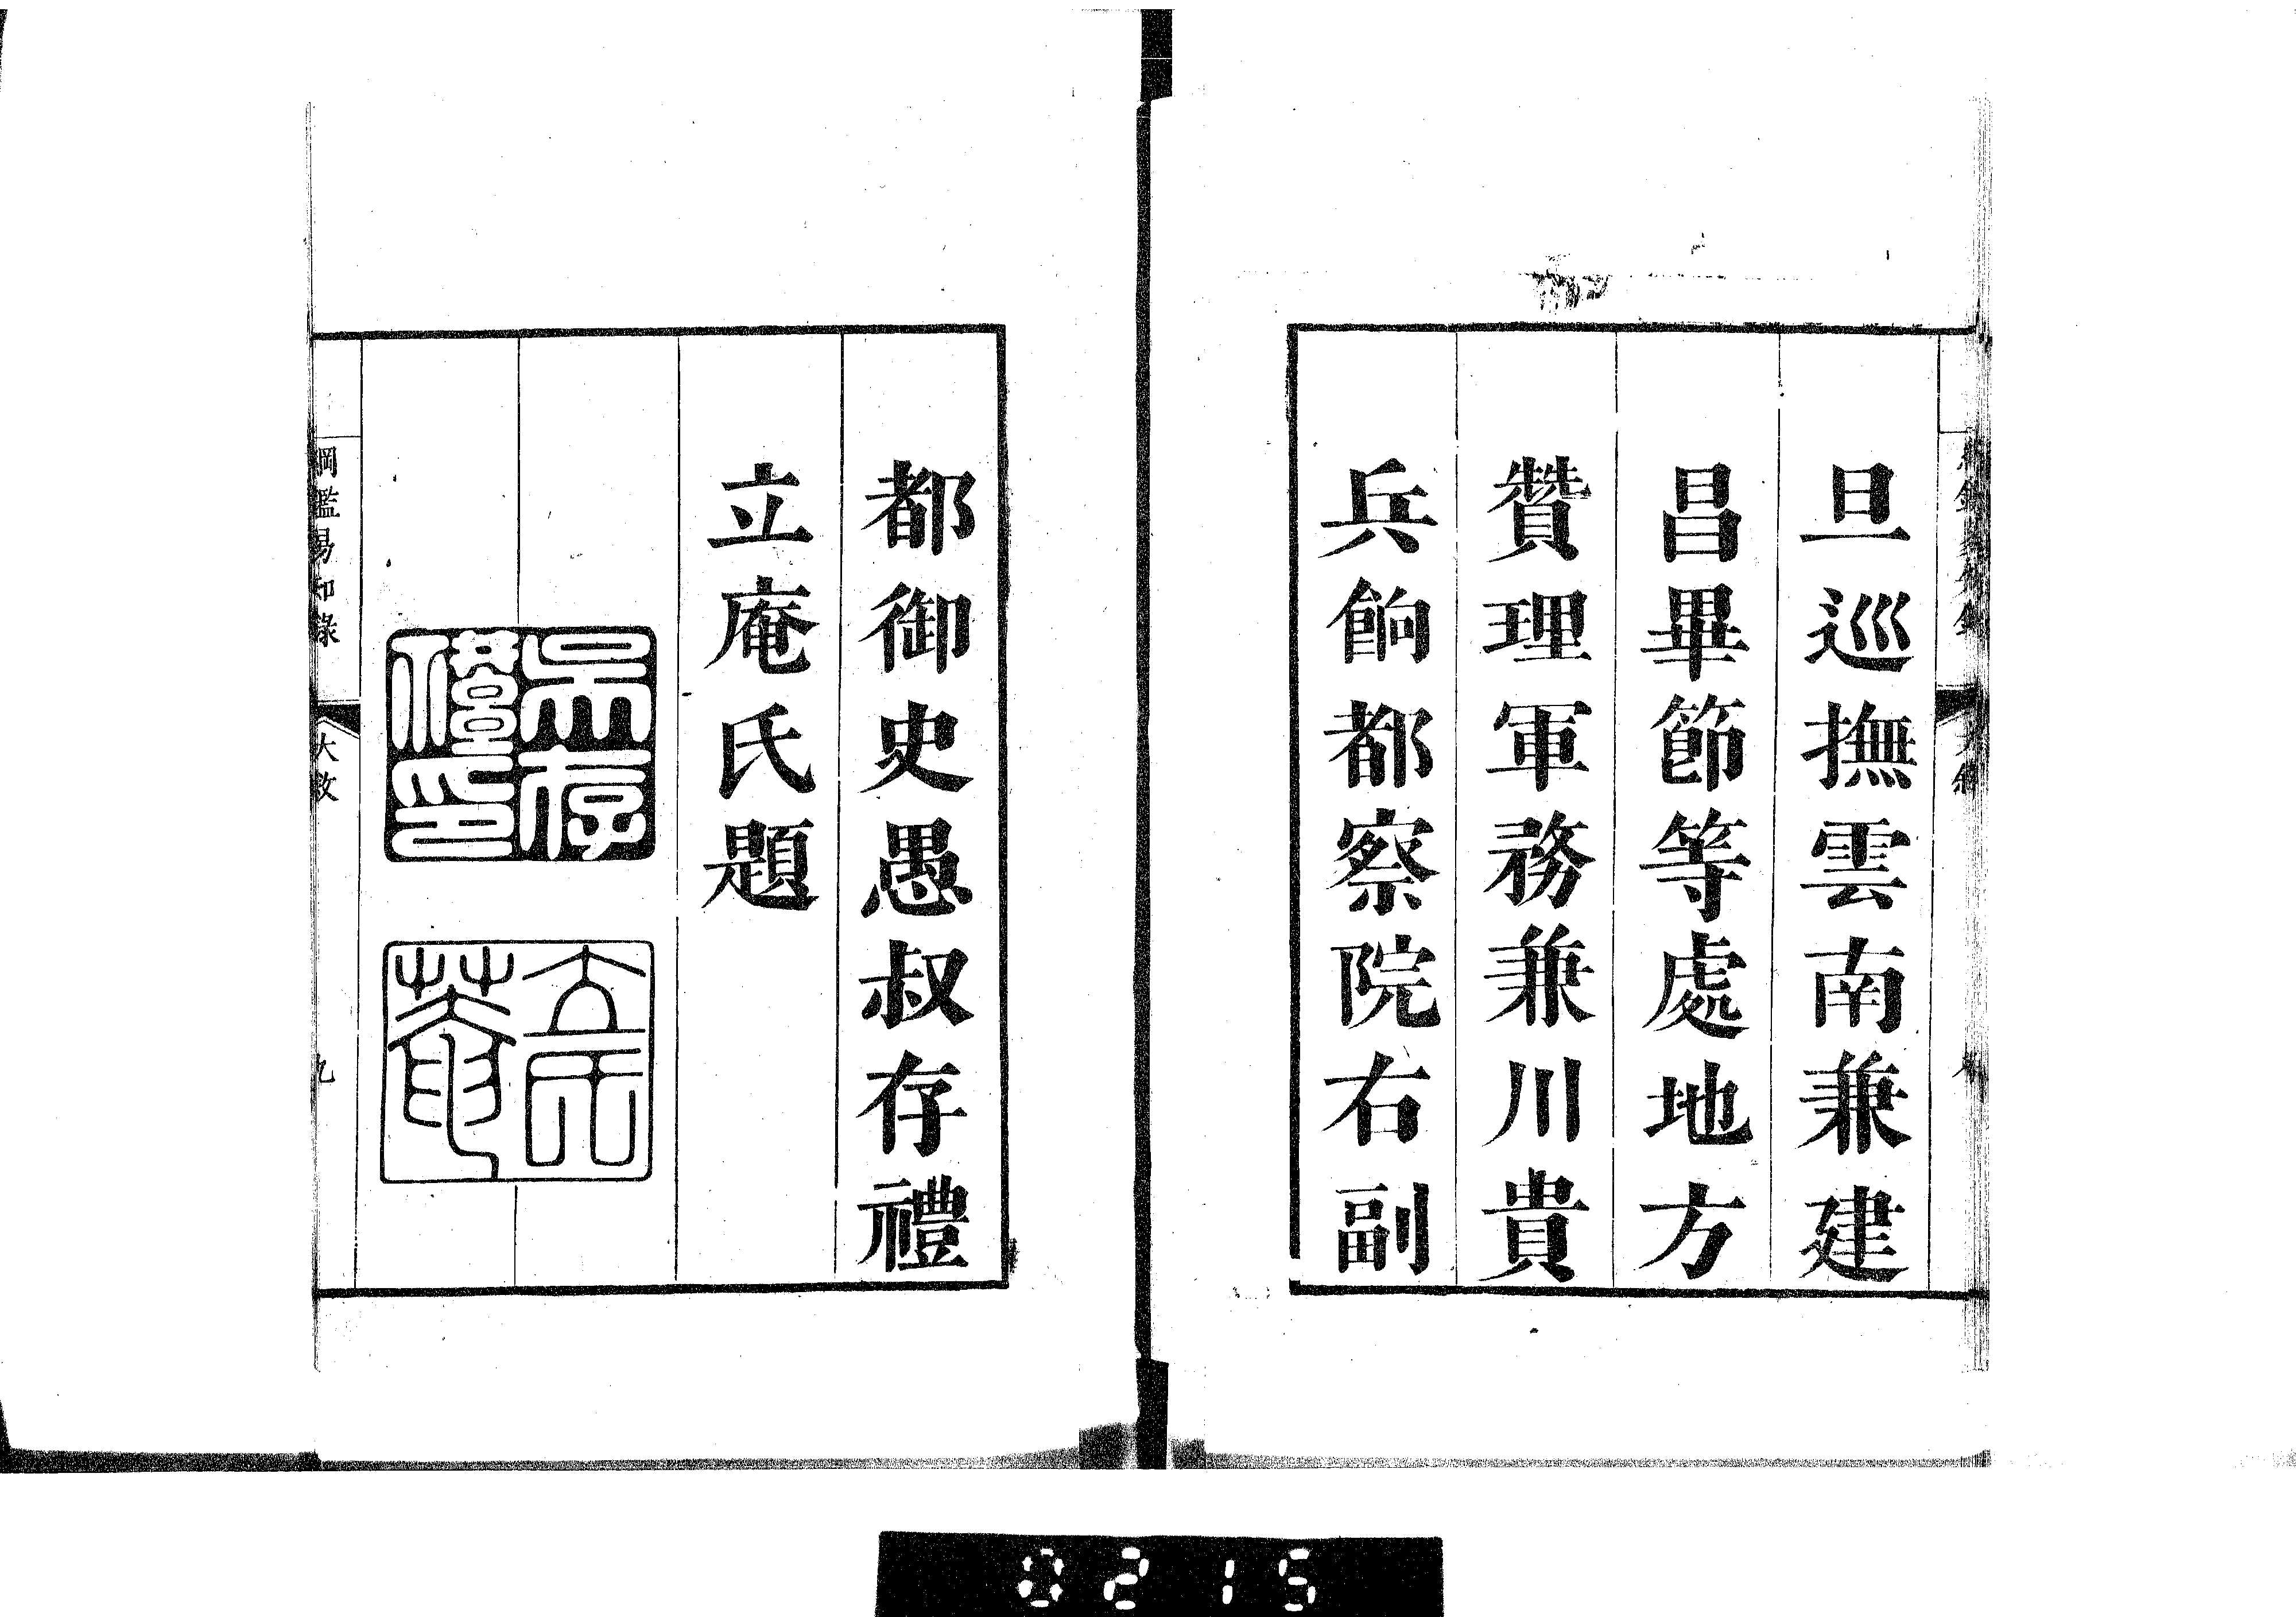 旦巡撫雲南兼建
昌畢節等處地方
贊理軍務兼川貴
兵餉都察院右副
都御史愚叔存禮
立庵氏題
吳存
禮印
立
庵
綱鑑易知錄
大敘
九
0215